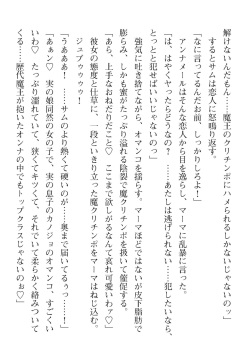 解けないんだもん……魔王のクリチンポにハメられるしかないじゃないのっ」
するとサムは恋人に怒鳴り返す。
「なに言ってるんだお前、しっかりしろよ！」
アンナメールはそんな恋人から目を逸らし、マーマに乱暴に言った。
「は、はやくヤッたらどうなの？　あたしは逃げられない……犯したいなら、
とっとと犯せばいいじゃないのっ」
強気に吐き捨てながら、オマンコを揺らす。マーマほどではないが皮下脂肪で
膨らみ、しかも蜜がたっぷり溢れる陰裂で魔クリチンポを扱いて催促する。
「あら、上手なおねだりだこと♡　ここまで欲しがるなんて哀れ可愛いわァ♡」
彼女の態度と仕草に、一段といきり立った魔クリチンポをマーマはねじ込む。
ジュブゥゥゥゥ！
「うああぁ！　……サムのより熱くて硬いのが……奥まで届いてるぅっ……！
「あぁン♡　実の娘同然の女の子で、実の息子のカノジョのオマンコ、すごくい
いわ♡　たっぷり濡れていて、狭くてキツくて、それでいて柔らかく絡みついて
くる……歴代魔王が抱いたオンナの中でもトップクラスじゃないのぉ♡」